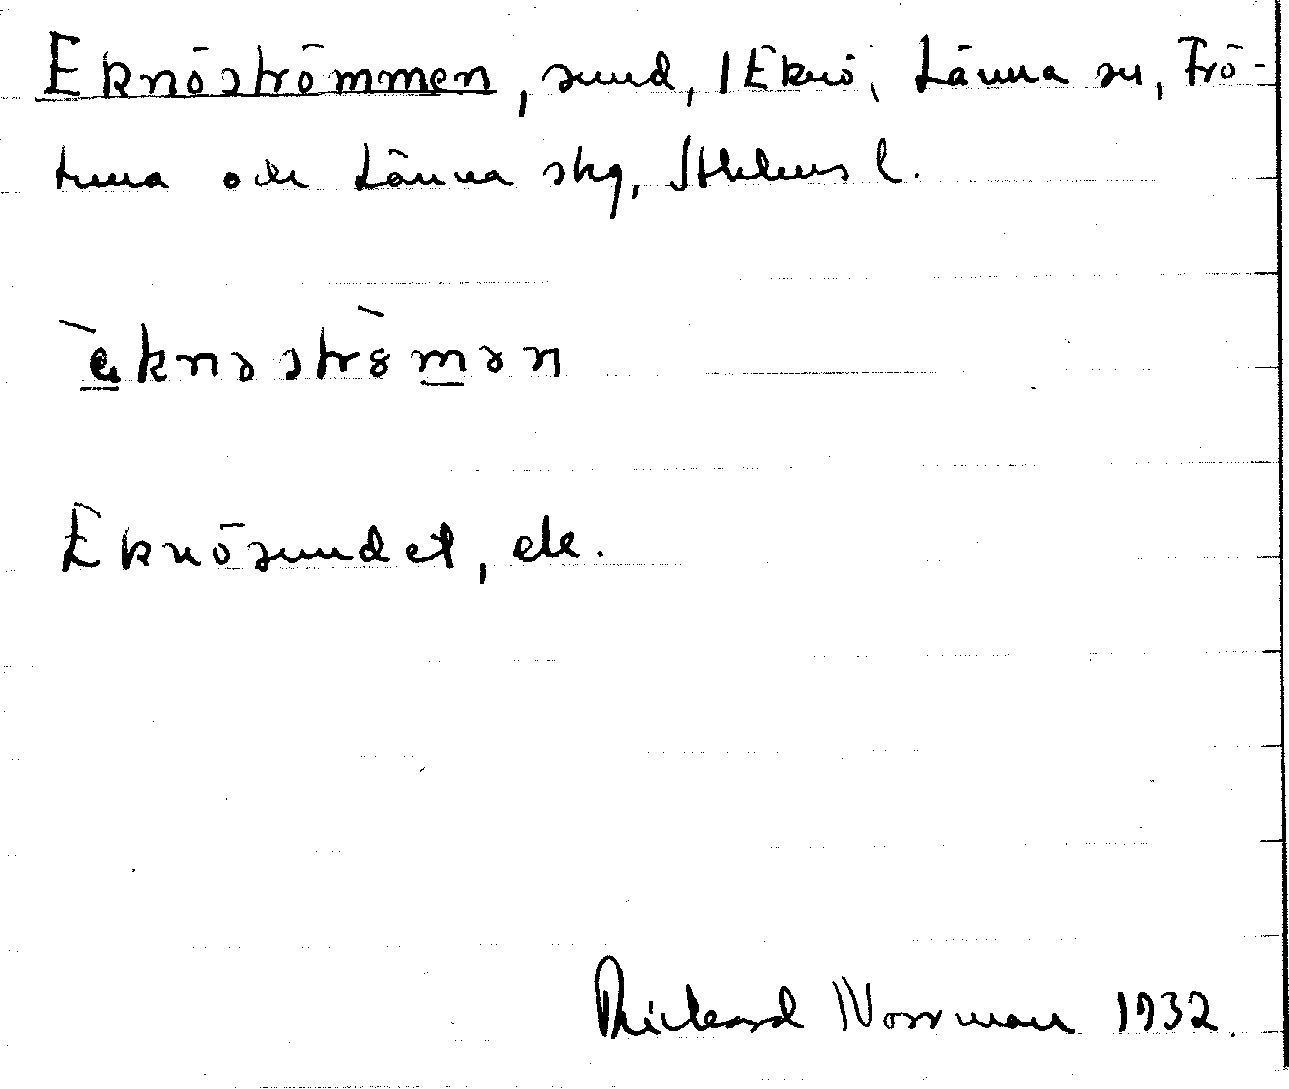 Eknöströmmen, sund, 1 Eknö, Länna sn, Frö-
tuna och Länna skg, Sthlms l.
èknəstrə̀mən
Eknösundet, ek.
Rickard Norrman 1932.